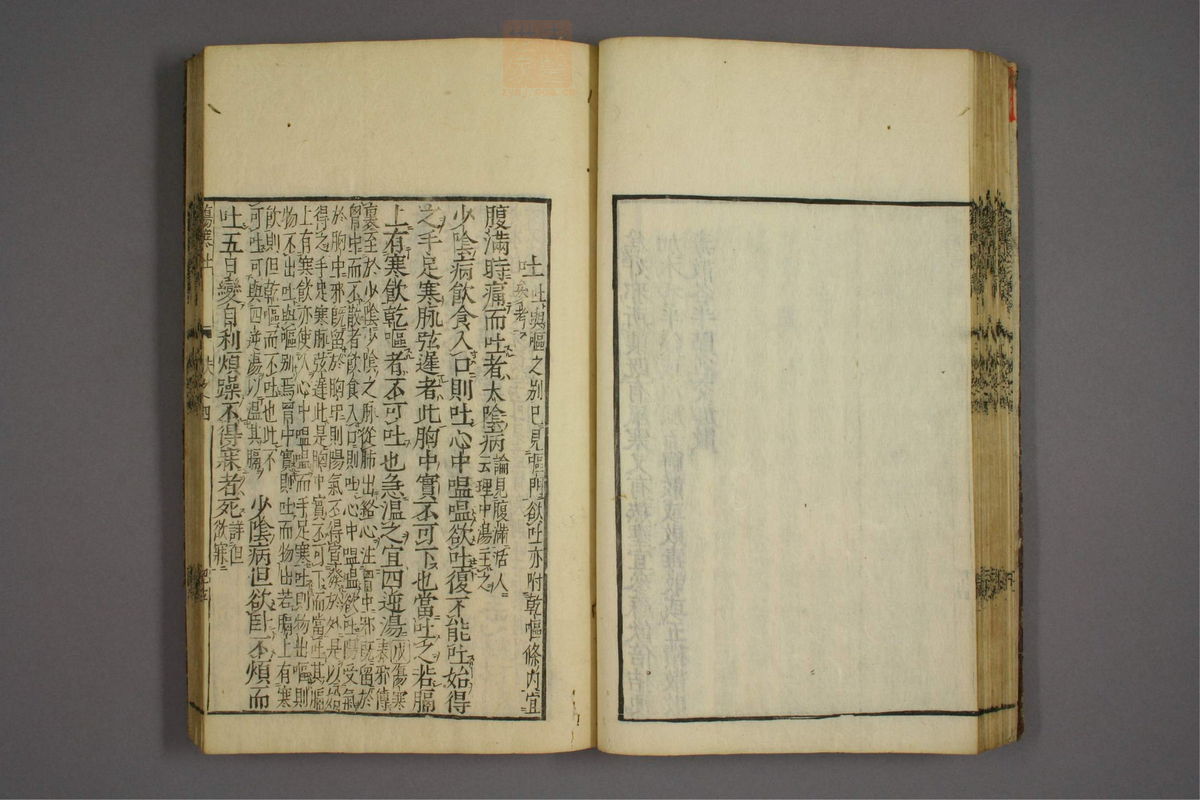 吐 吐與嘔之別已見嘔門欲吐亦附乾嘔條内宜
參考
腹滿時痛而吐者太陰病 論見腹滿活人
云理中湯主之
少陰病飲食入口則吐心中嗢嗢欲吐復不能吐始得
之手足寒脈弦遲者此胸中實不可下也當吐之若膈
上有寒飲乾嘔者不可吐也急溫之宜四逆湯 成傷寒
表邪傳
裏至於少陰少陰之脈從肺出絡心注胸中邪既留於
胸中而不散者飲食入口則吐心中嗢嗢欲吐陽受氣
於胸中邪既留於胸中則陽氣不得宣發於外是以始
得之手足寒脈弦遲此是胸中實不可下而當吐其膈
上有寒飲亦使人心中嗢嗢而手足寒吐則物出嘔則
物不出吐與嘔別焉胸中實則吐而物出若膈上有寒
飲則但乾嘔而不吐也此不
可吐可與四逆湯以溫其膈 少陰病但欲臥不煩而
吐五日變自利煩躁不得寐者死 詳但
欲寐
傷寒吐
帙之四